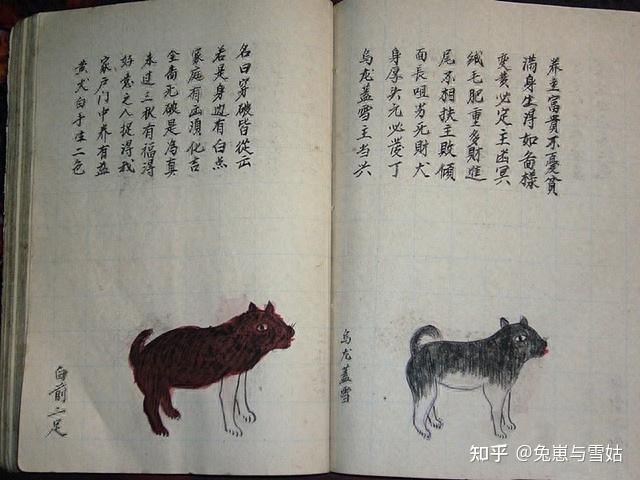 黄犬白手生二色
家户门中养有益
好意之人捉得我
未过三秋有福得
全 死破是為真
家庭有凶須化吉
若是身边有白点
名曰穿破皆從云
白前二足
乌龙蓋雪主当兴
身厚头元必发丁
面長咀 死財犬
尾不相扶主敗傾
絨毛肥重多財進
变黄必定主凶冥
满身生得如 樣
养主富貴不憂貧
乌龙蓋雪
知乎 @兔崽与雪姑